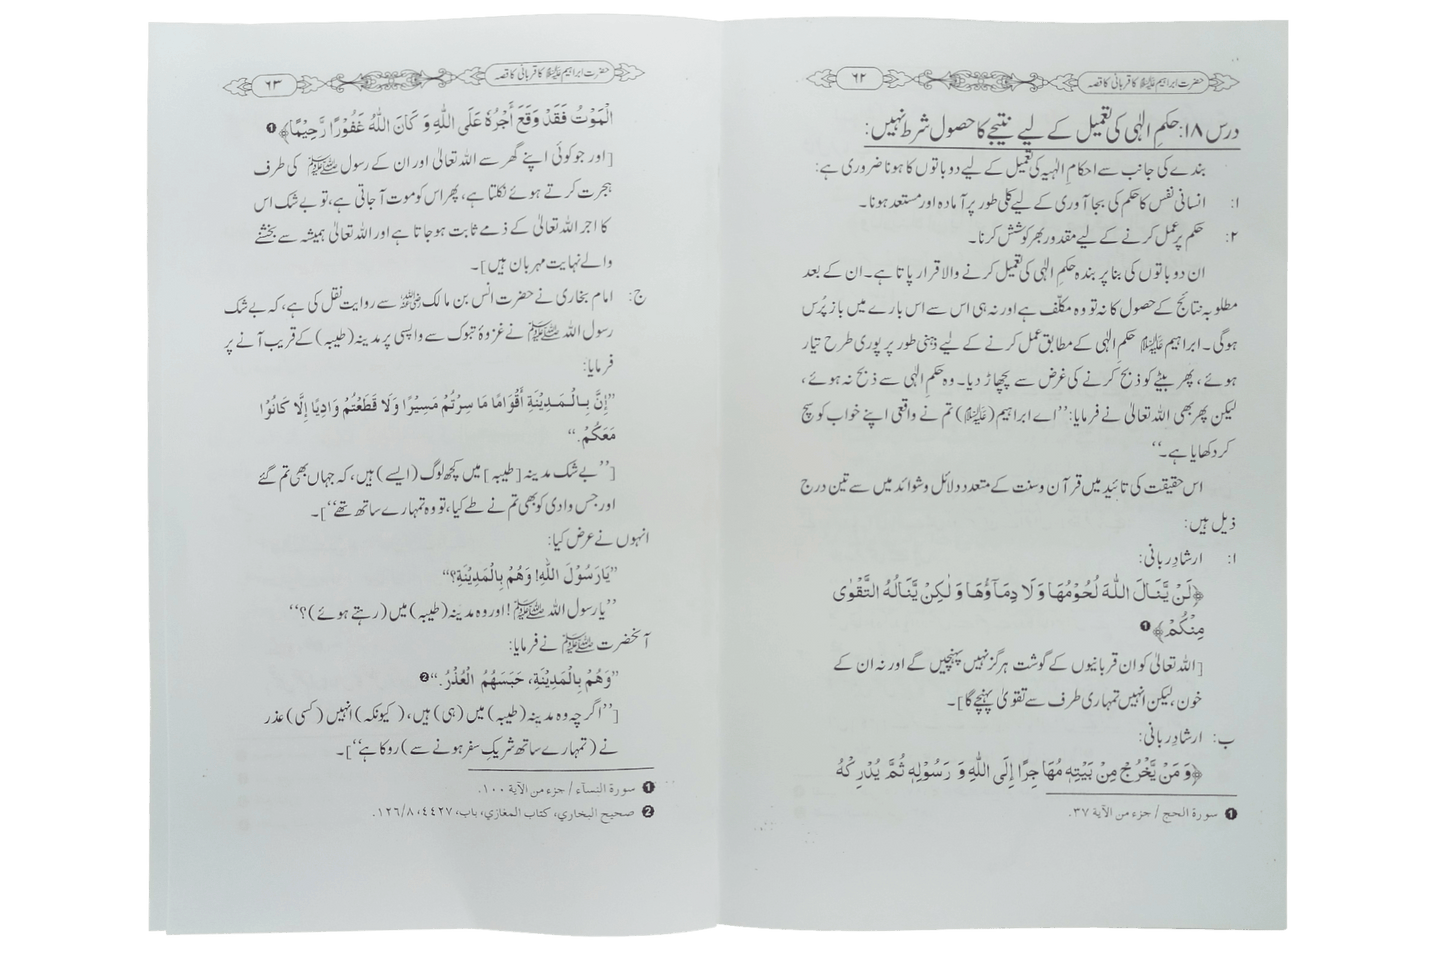 حضرت ابراہیم علیہ السلام کا قربانی کا قصہ
۶۲
درس ۱۸: حکمِ الٰہی کی تعمیل کے لیے نتیجے کا حصول شرط نہیں:
بندے کی جانب سے احکامِ الہیہ کی تعمیل کے لیے دو باتوں کا ہونا ضروری ہے:
۱: انسانی نفس کا حکم کی بجا آوری کے لیے کلی طور پر آمادہ اور مستعد ہونا۔
۲: حکم پر عمل کرنے کے لیے مقدور بھر کوشش کرنا۔
ان دو باتوں کی بنا پر بندہ حکمِ الٰہی کی تعمیل کرنے والا قرار پاتا ہے۔ ان کے بعد
مطلوبہ نتائج کے حصول کا نہ تو وہ مکلّف ہے اور نہ ہی اس سے اس بارے میں باز پُرس
ہوگی۔ ابراہیم علیہ السلام حکمِ الٰہی کے مطابق عمل کرنے کے لیے ذہنی طور پر پوری طرح تیار
ہوئے، پھر بیٹے کو ذبح کرنے کی غرض سے پچھاڑ دیا۔ وہ حکمِ الٰہی سے ذبح نہ ہوئے،
لیکن پھر بھی اللہ تعالیٰ نے فرمایا: ’’اے ابراہیم (علیہ السلام) تم نے واقعی اپنے خواب کو سچ
کر دکھایا ہے۔‘‘
اس حقیقت کی تائید میں قرآن و سنت کے متعدد دلائل و شواہد میں سے تین درج
ذیل ہیں:
ا: ارشادِ ربانی:
﴿لَنْ یَّنَالَ اللّٰهَ لُحُوْمُهَا وَ لَا دِمَآؤُهَا وَ لٰکِنْ یَّنَالُهُ التَّقْوٰی
مِنْکُمْ﴾ ❶
[اللہ تعالیٰ کو ان قربانیوں کے گوشت ہرگز نہیں پہنچیں گے اور نہ ان کے
خون، لیکن انہیں تمہاری طرف سے تقویٰ پہنچے گا]۔
ب: ارشادِ ربانی:
﴿وَ مَنْ یَّخْرُجْ مِنْ بَیْتِهٖ مُهَاجِرًا اِلَی اللّٰهِ وَ رَسُوْلِهٖ ثُمَّ یُدْرِکْهُ
❶ سورة الحج / جزء من الآية ۳۷.
حضرت ابراہیم علیہ السلام کا قربانی کا قصہ
۶۳
الْمَوْتُ فَقَدْ وَقَعَ أَجْرُهٗ عَلَی اللّٰهِ وَ کَانَ اللّٰهُ غَفُوْرًا رَّحِیْمًا﴾ ❶
[اور جو کوئی اپنے گھر سے اللہ تعالیٰ اور ان کے رسول ﷺ کی طرف
ہجرت کرتے ہوئے نکلتا ہے، پھر اس کو موت آجاتی ہے، تو بے شک اس
کا اجر اللہ تعالیٰ کے ذمے ثابت ہوجاتا ہے اور اللہ تعالیٰ ہمیشہ سے بخشنے
والے نہایت مہربان ہیں]۔
ج: امام بخاری نے حضرت انس بن مالک رضی اللہ عنہ سے روایت نقل کی ہے، کہ بے شک
رسول اللہ ﷺ نے غزوۂ تبوک سے واپسی پر مدینہ (طیبہ) کے قریب آنے پر
فرمایا:
”إِنَّ بِالْمَدِیْنَةِ أَقْوَامًا مَا سِرْتُمْ مَسِیْرًا وَلَا قَطَعْتُمْ وَادِیًا إِلَّا کَانُوْا
مَعَکُمْ.“
[’’بے شک مدینہ [طیبہ] میں کچھ لوگ (ایسے) ہیں، کہ جہاں بھی تم گئے
اور جس وادی کو بھی تم نے طے کیا، تو وہ تمہارے ساتھ تھے‘‘]۔
انہوں نے عرض کیا:
”یَارَسُوْلَ اللّٰهِ! وَهُمْ بِالْمَدِیْنَةِ؟“
’’یا رسول اللہ ﷺ! اور وہ مدینہ (طیبہ) میں (رہتے ہوئے)؟‘‘
آنحضرت ﷺ نے فرمایا:
”وَهُمْ بِالْمَدِیْنَةِ، حَبَسَهُمُ الْعُذْرُ.“ ❷
[’’اگرچہ وہ مدینہ (طیبہ) میں (ہی) ہیں، (کیونکہ) انہیں (کسی) عذر
نے (تمہارے ساتھ شریکِ سفر ہونے سے) روکا ہے‘‘]۔
❶ سورة النسآء / جزء من الآية ۱۰۰.
❷ صحیح البخاري، کتاب المغازي، باب، ۴۴۲۷، ۱۲۶/۸.